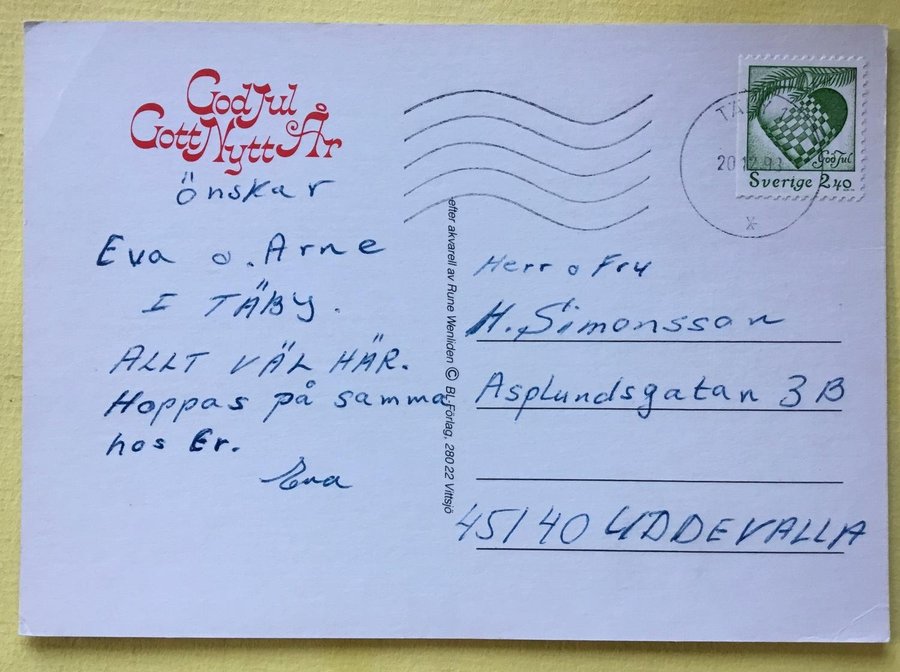 God Jul
Gott Nytt År
önskar
Eva o. Arne
I TÄBY.
ALLT VÄL HÄR.
Hoppas på samma
hos Er.
Eva
efter akvarell av Rune Wenliden © BL-Förlag, 280 22 Vittsjö
20.12.93
God Jul
Sverige 2.40
Herr o Fru
H. Simonsson
Asplundsgatan 3 B
45140 UDDEVALLA